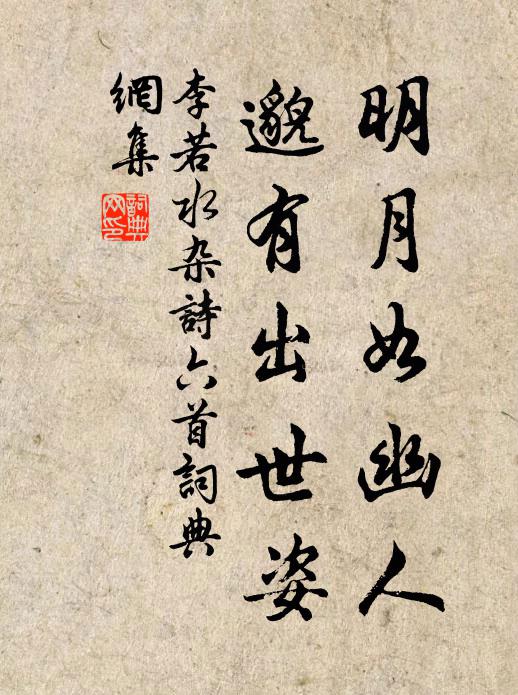 明月如幽人
邈有出世姿
李若水杂詩六首詞典
網集
詞典
网印